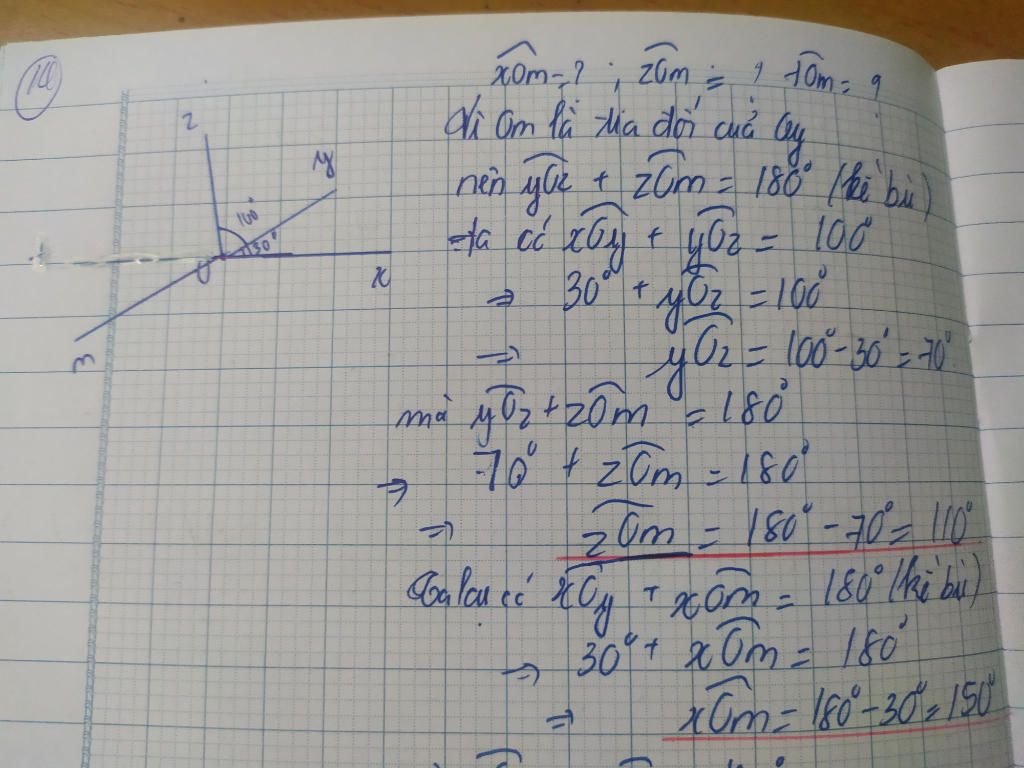 14
xOm = ? ; zOm = ? tOm = ?
Vì Om là tia đối của Oy
nên yOz + zOm = 180° (kề bù)
ta có xOy + yOz = 100°
⇒ 30° + yOz = 100°
⇒ yOz = 100° - 30° = 70°
mà yOz + zOm = 180°
⇒ 70° + zOm = 180°
⇒ zOm = 180° - 70° = 110°
Ta lại có xOy + xOm = 180° (kề bù)
⇒ 30° + xOm = 180°
⇒ xOm = 180° - 30° = 150°
z
y
100°
30°
t
O
x
m